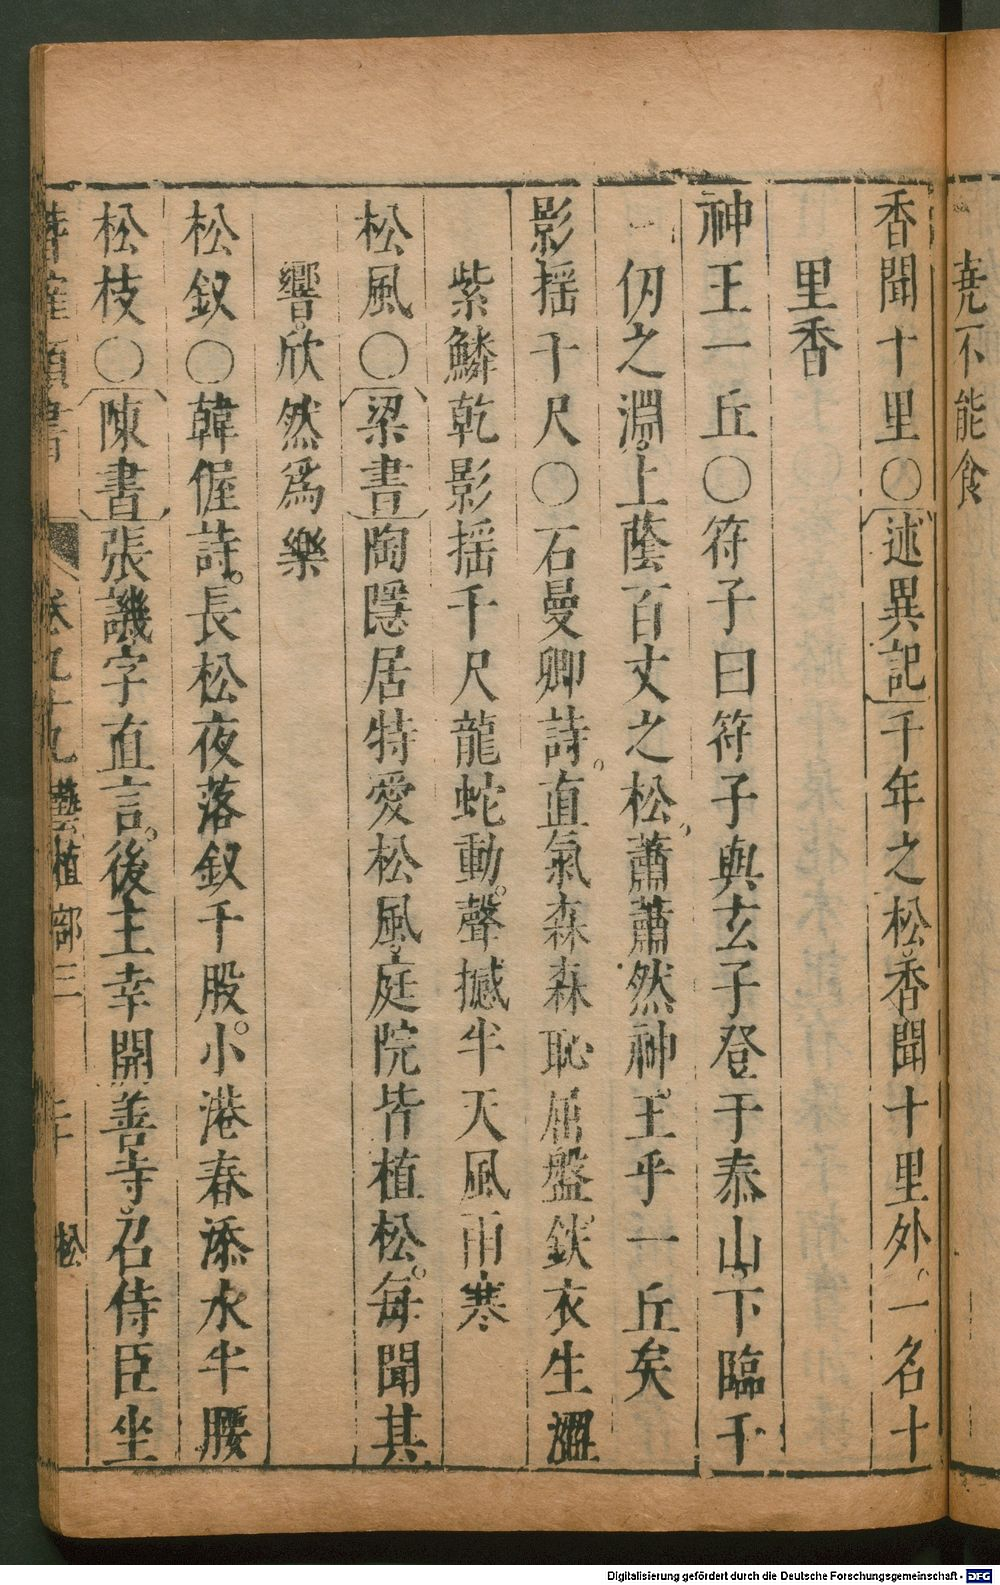 堯不能食
香聞十里〇述異記千年之松香聞十里外。一名十
里香
神王一丘〇符子曰符子與玄子登于泰山下臨千
仞之淵。上蔭百丈之松蕭蕭然神王乎一丘矣
影摇千尺〇石曼卿詩。直氣森森恥屈盤鉄衣生澀
紫鱗乾影摇千尺龍蛇動。聲撼半天風雨寒
松風〇梁書陶隱居特愛松風庭院皆植松。每聞其
響。欣然爲樂
松釵〇韓偓詩。長松夜落釵千股。小港春添水半腰
松枝〇陳書張譏字直言。後主幸開善寺。召侍臣坐
卷九十九 藝植部三 二十 松
Digitalisierung gefördert durch die Deutsche Forschungsgemeinschaft - DFG